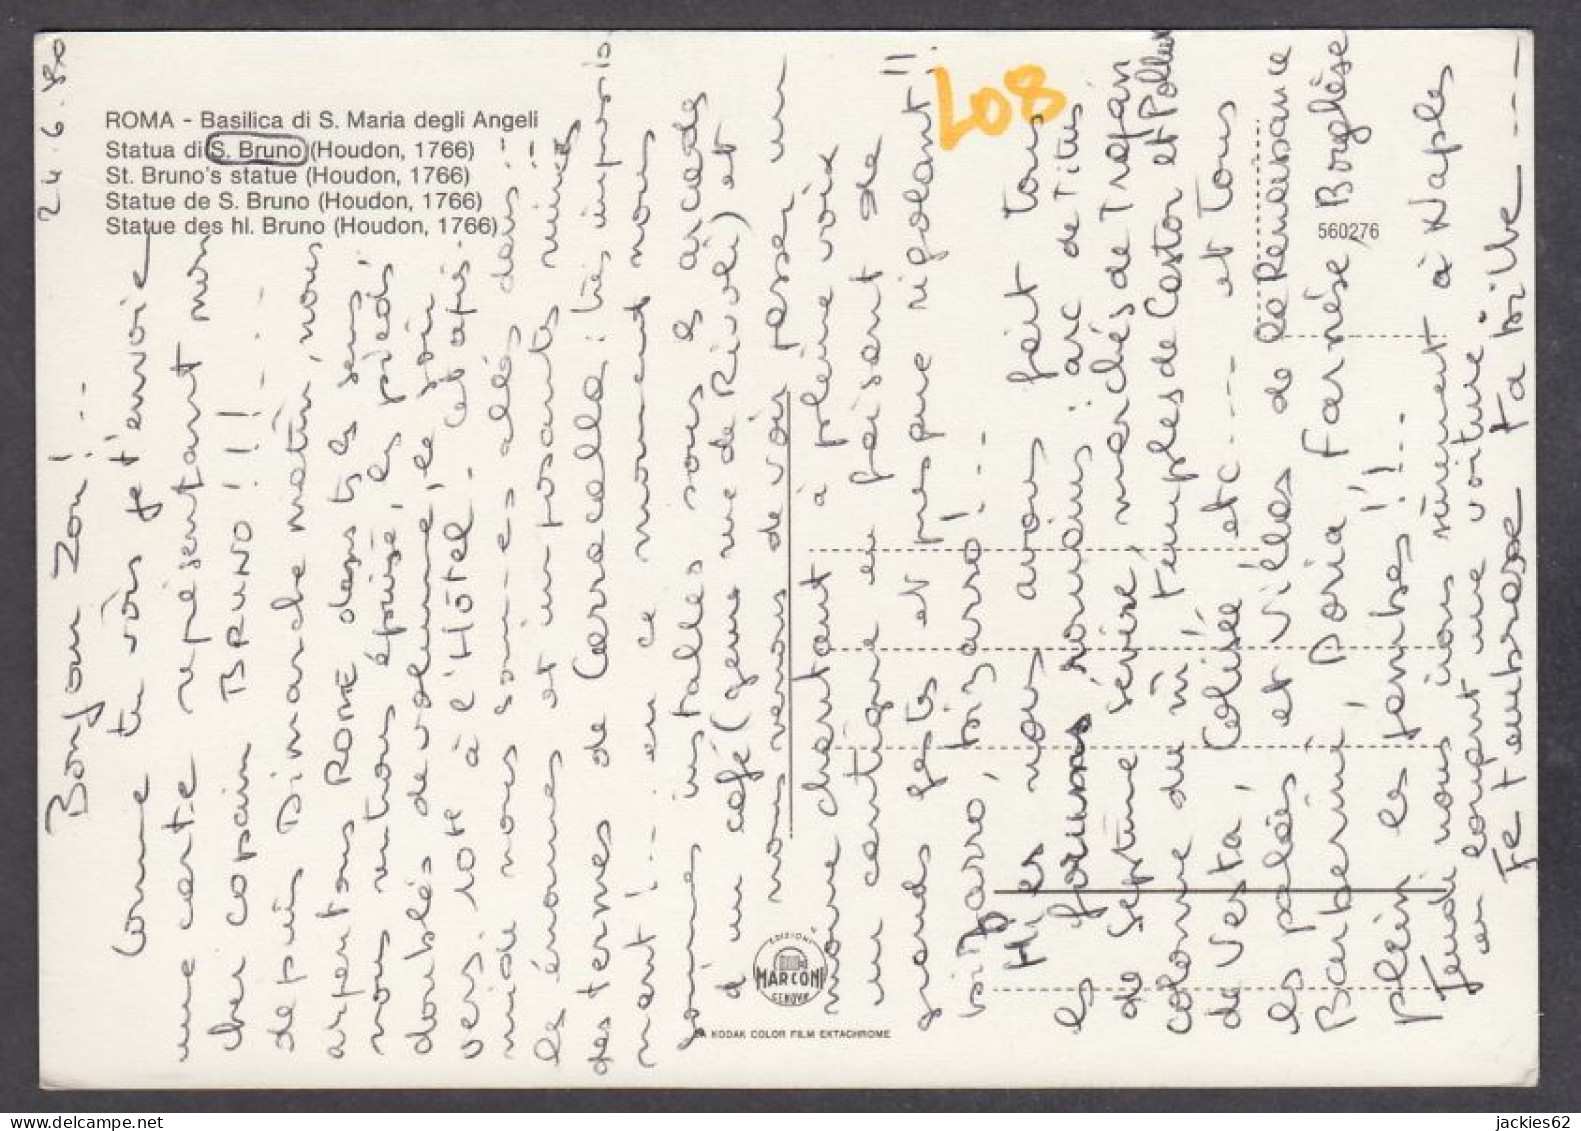 ROMA - Basilica di S. Maria degli Angeli
Statua di S. Bruno (Houdon, 1766)
St. Bruno's statue (Houdon, 1766)
Statue de S. Bruno (Houdon, 1766)
Statue des hl. Bruno (Houdon, 1766)
24.6.80
L08
560276
Bonjour Zon!...
Comme tu vois je t'envoie
une carte représentant mon
cher copain BRUNO!!!...
depuis Dimanche matin, nous
arpentons ROME dans ts les sens;
nous rentrons épuisé, les pieds
doublés de volume, le soir
vers 10H à l'Hôtel. cet après-
midi nous sommes allés dans
les énormes et imposantes ruines
des termes de Carracalla: très impressio
nant!... en ce moment nous
sommes installés sous les arcades
d'un café (genre rue de Rivoli) et
nous venons de voir passer un
moine chantant à pleine voix
un cantique en faisant de
grands gestes et presque rigolant!!
bizarro, bizarro!...
Hier nous avons fait tous
les forums romains: arc de Titus
de Septime sévère, marchés de Trajan
colonne du m̂, temples de Castor et Pollux
de Vesta, Colisée etc... et Tous
les palais et villas de la Renaissance
Barberini, Doria, Farnése Borghèse
plein les jambes!!...
Jeudi nous irons sûrement à Naples
en louant une voiture.
Je t'embrasse ta bille...
EDIZIONI
MARCONI
GENOVA
DA KODAK COLOR FILM EKTACHROME
jackies62